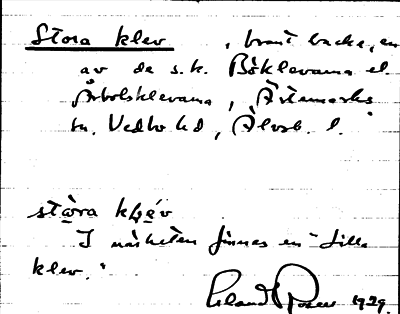 Stora klev , brant backe, en
av de s.k. Böklevarna el.
Årbolsklevarna, Ärtemarks
sn. Vedbo hd, Älvsb. l.
stòra klév
I närheten finnes en "Lilla
klev."
Rosen 1929.